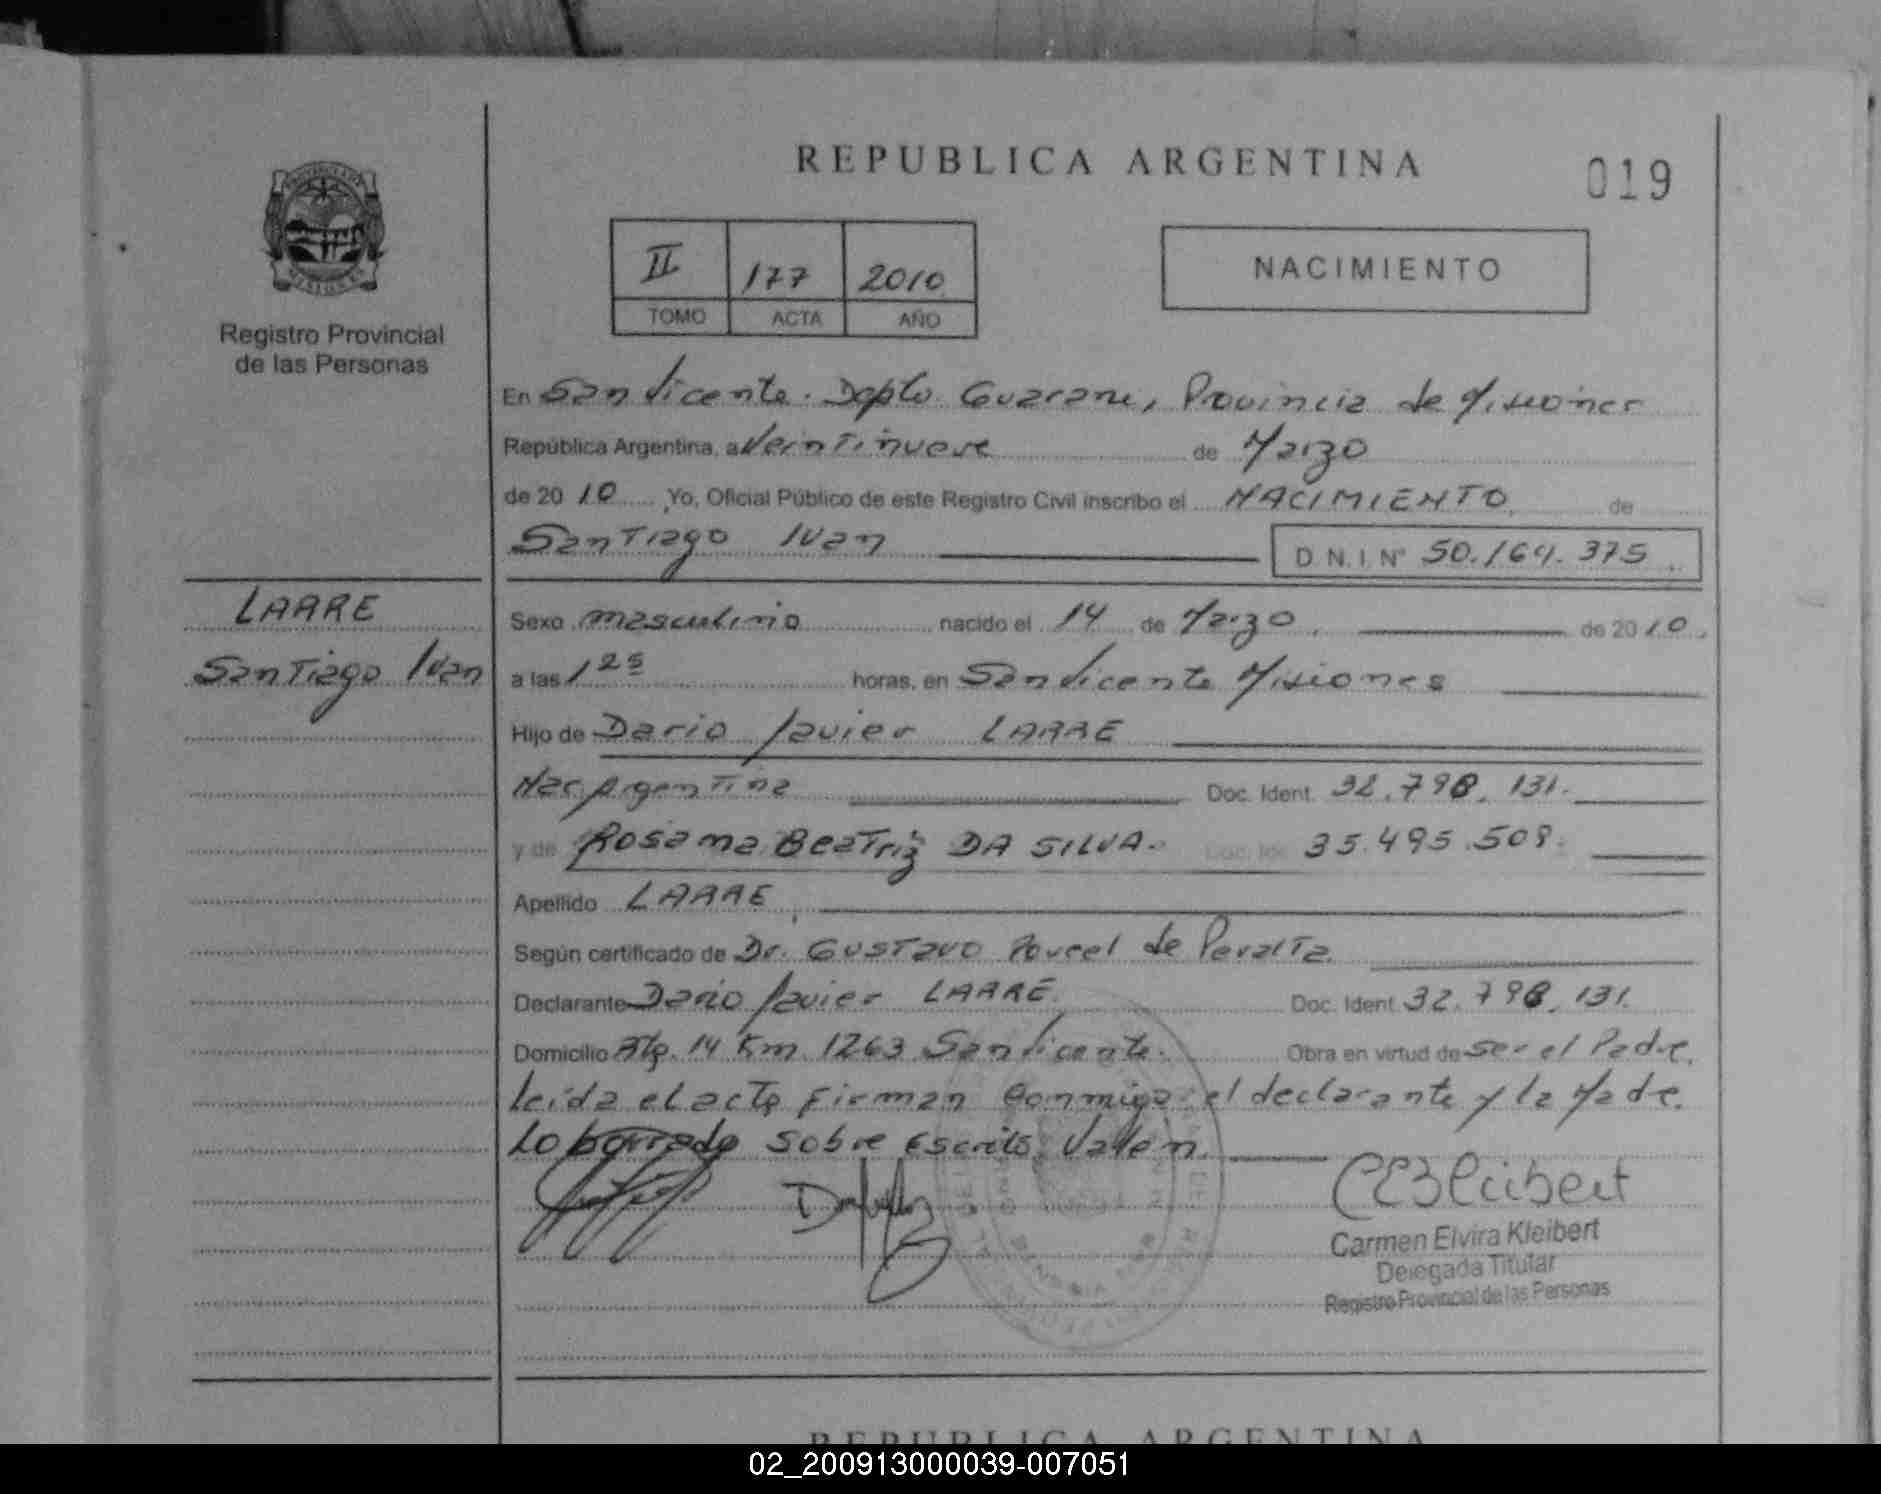 REPUBLICA ARGENTINA
019
II 177 2010
TOMO ACTA AÑO
NACIMIENTO
Registro Provincial
de las Personas
En San Vicente. Depto. Guarani, Provincia de Misiones
República Argentina, a Veintinueve de Marzo
de 2010 ,Yo, Oficial Público de este Registro Civil inscribo el NACIMIENTO. de
Santiago Ivan D.N.I. Nº 50.164.375
LARRE
Santiago Ivan
Sexo masculino nacido el 14 de Marzo. de 2010.
a las 1 25 horas, en San Vicente Misiones
Hijo de Dario Javier LARRE
Nac. Argentina Doc. Ident. 32.798.131.
y de Rosana Beatriz DA SILVA. Doc. Ide 35.495.509.
Apellido LARRE
Según certificado de Dr. Gustavo Porcel de Peralta.
Declarante Dario Javier LARRE. Doc. Ident. 32.798.131.
Domicilio Rta. 14 Km 1263 San Vicente. Obra en virtud de ser el Padre.
leida el acta firman conmigo el declarante y la Madre.
Lo borrado sobre Escrito. Valen.
Carmen Elvira Kleibert
Delegada Titular
Registro Provincial de las Personas
REPUBLICA ARGENTINA
02_200913000039-007051